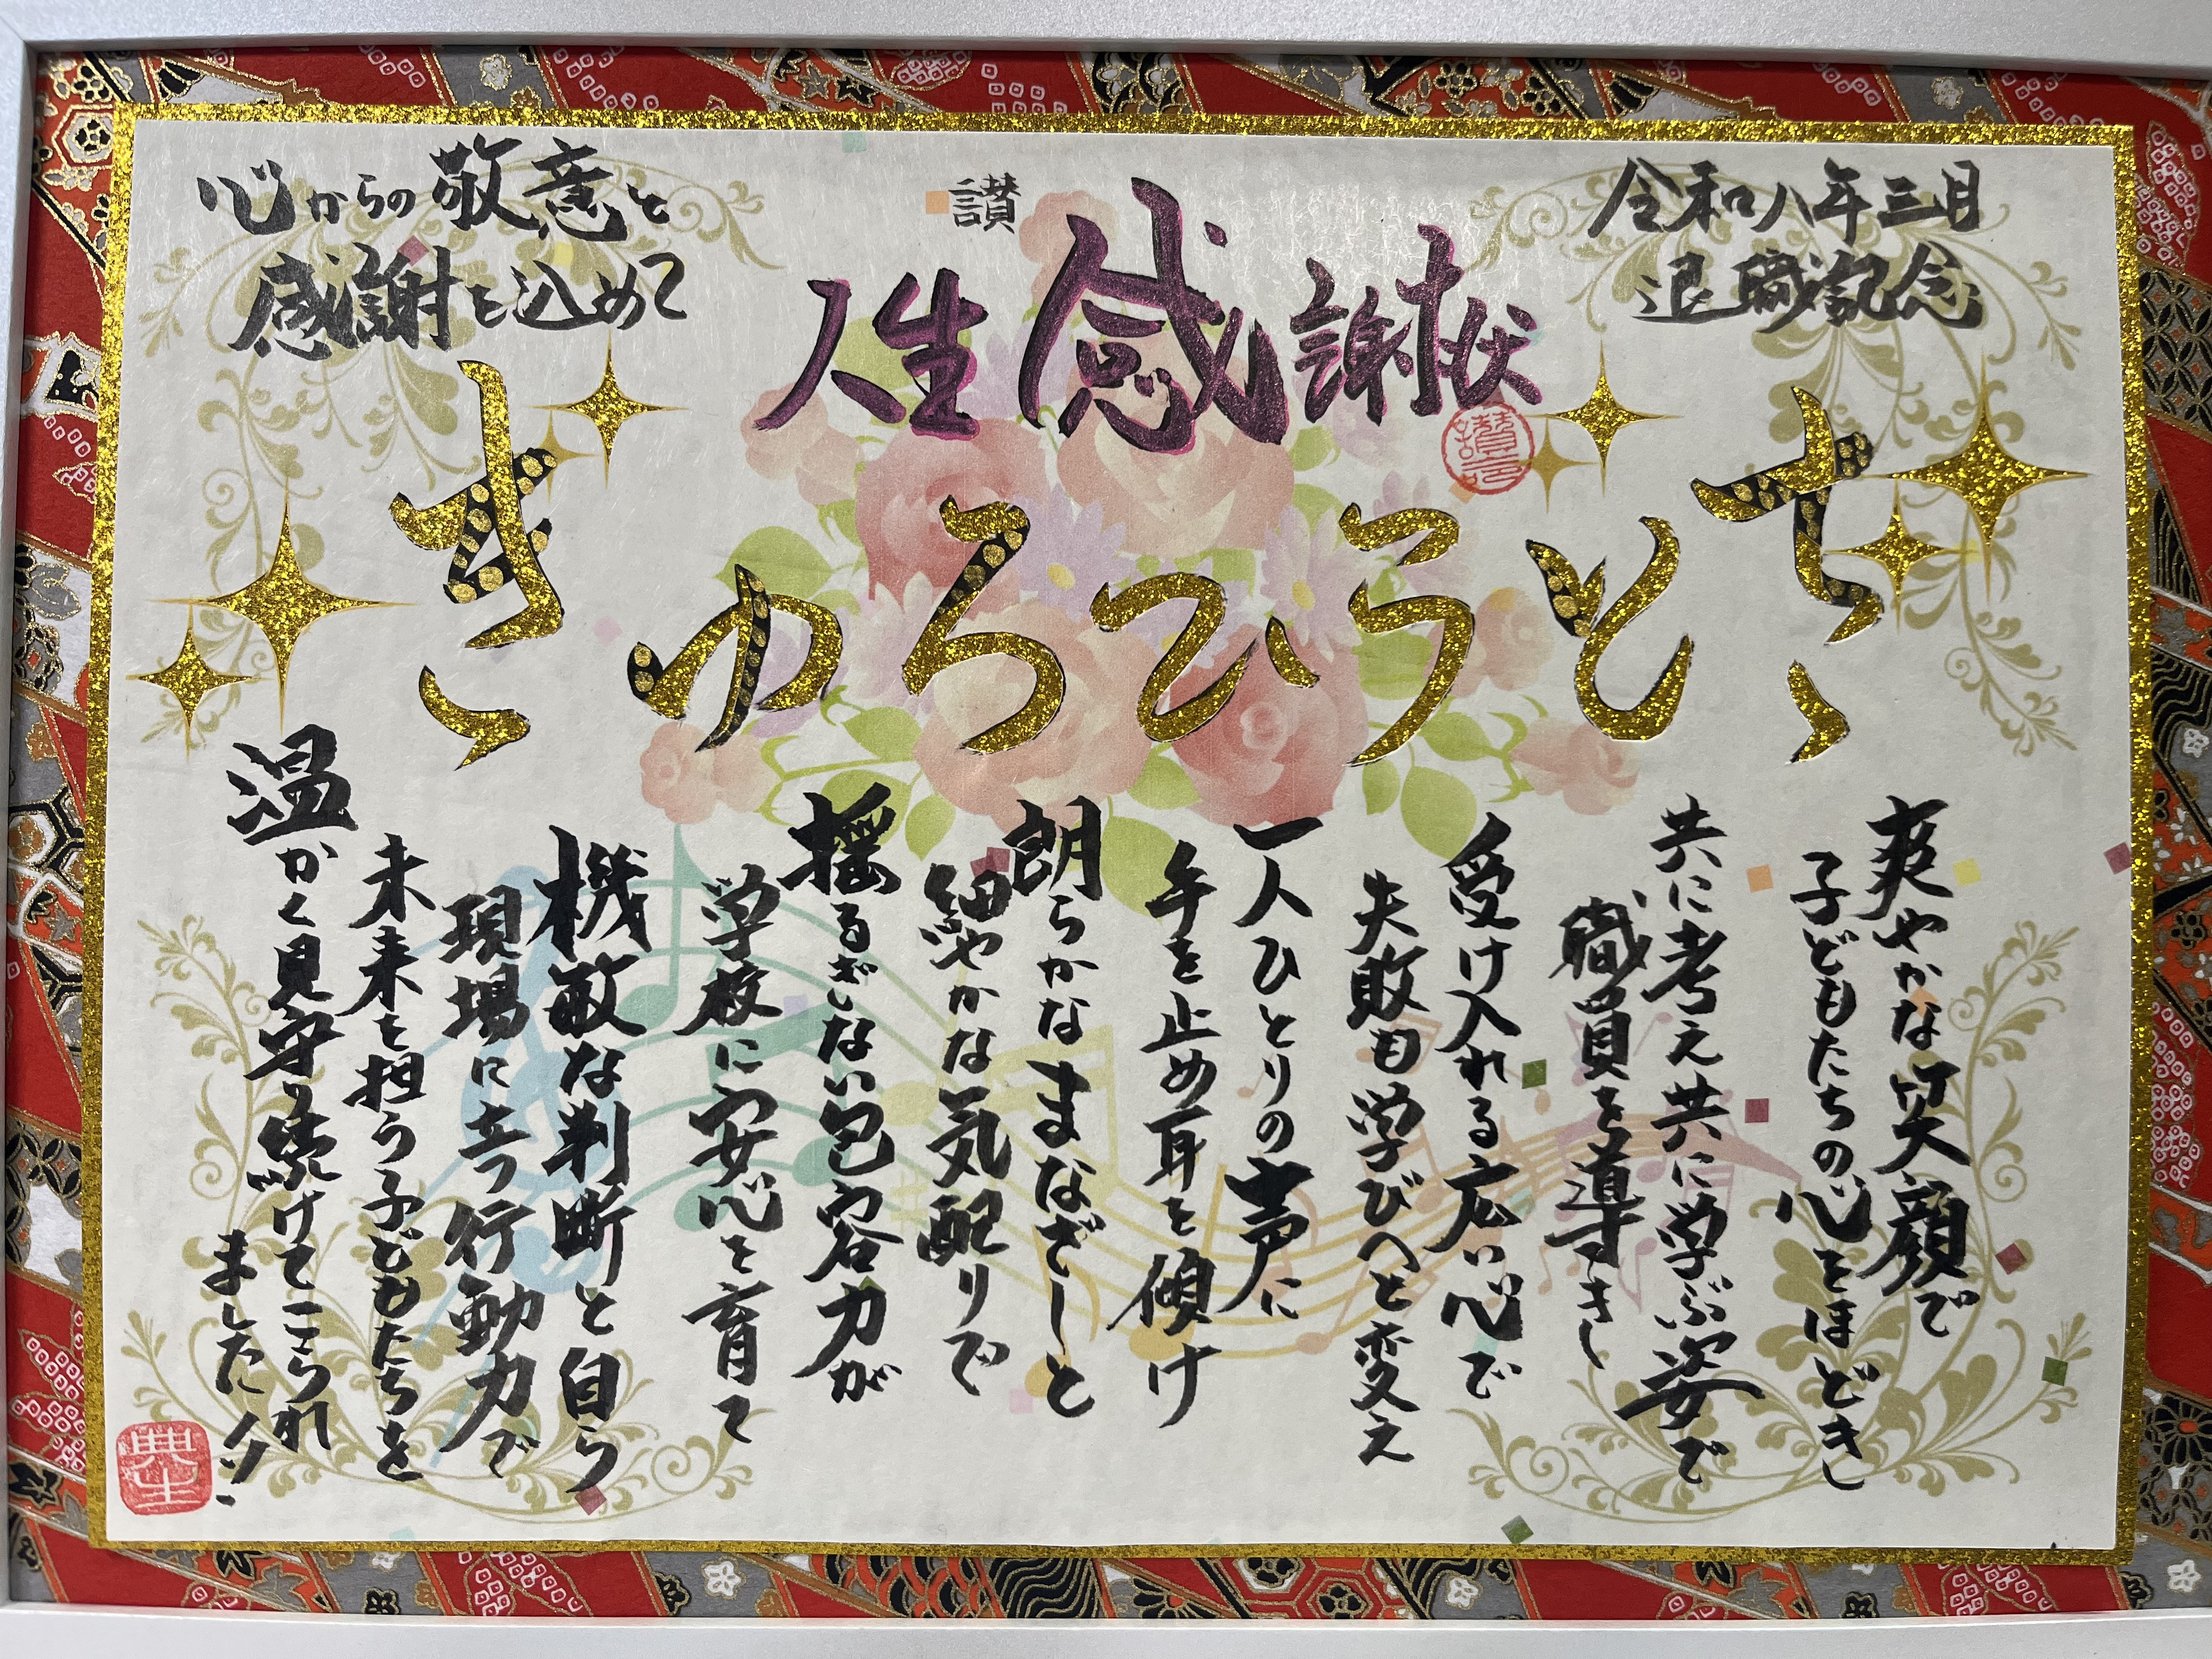 令和八年三月
退職記念
讃
人生感謝状
心からの敬意と
感謝を込めて
さとうひろゆき
爽やかな笑顔で
子どもたちの心をほどきし
共に考え共に学ぶ姿で
職員を導きし
受け入れる広い心で
失敗も学びへと変え
一人ひとりの声に
手を止め耳を傾け
朗らかなまなざしと
細やかな気配りで
揺るぎない包容力が
学校に安心を育て
機敏な判断と自ら
現場に立つ行動力で
未来を担う子どもたちを
温かく見守り続けてこられ
ました！！
典生